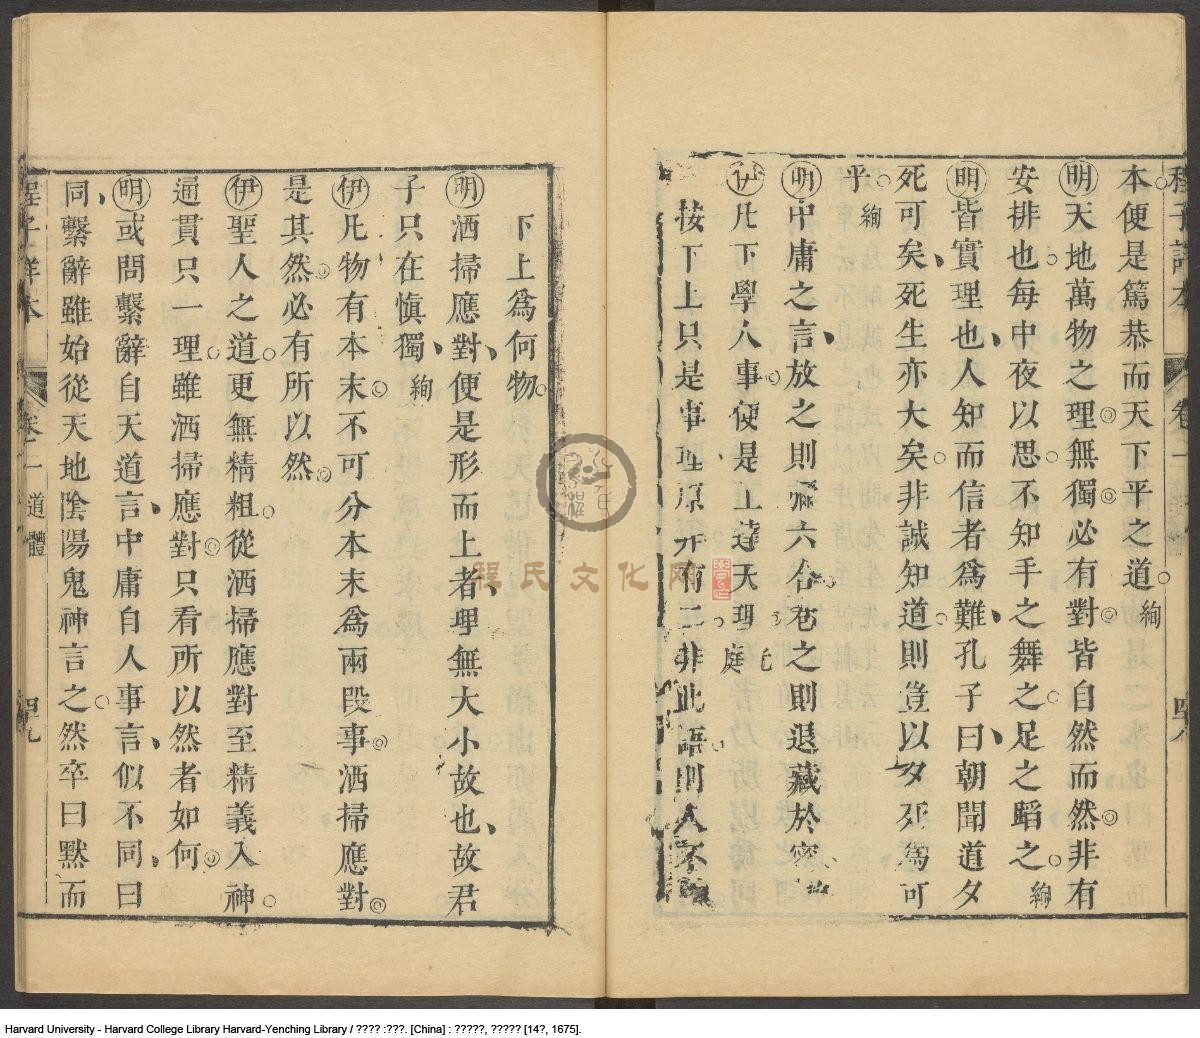 程子詳本 卷一 四八
本便是篤恭而天下平之道絢
明天地萬物之理無獨必有對皆自然而然非有
安排也每中夜以思不知手之舞之足之蹈之絢
明皆實理也人知而信者為難孔子曰朝聞道夕
死可矣死生亦大矣非誠知道則豈以夕死為可
乎絢
明中庸之言放之則彌六合卷之則退藏於密絢
伊凡下學人事便是上達天理
按下上只是事理原非有二非此語則人不
下上為何物
明洒掃應對便是形而上者理無大小故也故君
子只在慎獨絢
伊凡物有本末不可分本末為兩段事洒掃應對
是其然必有所以然
伊聖人之道更無精粗從洒掃應對至精義入神
通貫只一理雖洒掃應對只看所以然者如何
明或問繫辭自天道言中庸自人事言似不同曰
同繫辭雖始從天地陰陽鬼神言之然卒曰默而
程子詳本 卷一 道體 四九
程氏文化网
Harvard University - Harvard College Library Harvard-Yenching Library / ???? :???. [China] : ?????, ????? [14?, 1675].